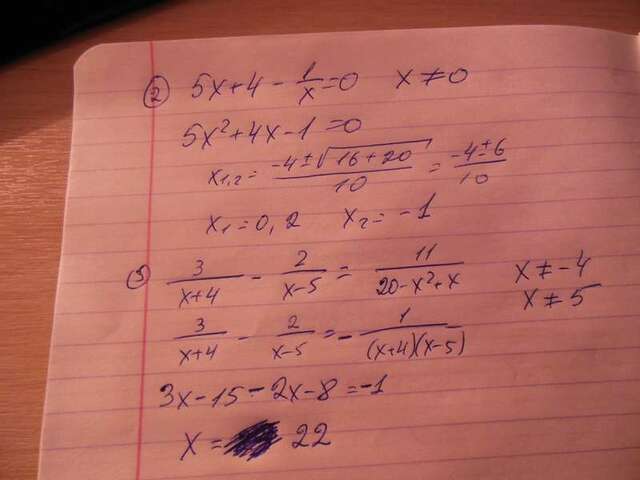 ② 5x+4 - 1/x = 0    x ≠ 0
5x² + 4x - 1 = 0
x₁,₂ = (-4 ± √(16+20))/10 = (-4 ± 6)/10
x₁ = 0,2    x₂ = -1
③ 3/(x+4) - 2/(x-5) = 11/(20-x²+x)    x ≠ -4
x ≠ 5
3/(x+4) - 2/(x-5) = - 1/((x+4)(x-5))
3x - 15 - 2x - 8 = -1
x = 22